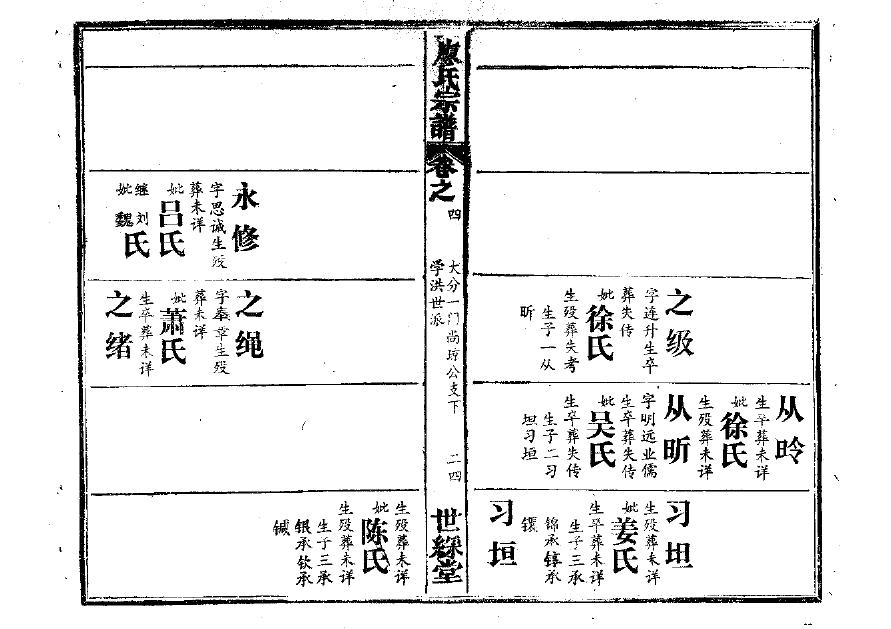 之级
字连升生卒
葬失传
妣徐氏
生殁葬失考
生子一从
昕
从昤
生卒葬未详
妣徐氏
生殁葬未详
从昕
字明远业儒
生卒葬失传
妣吴氏
生卒葬失传
生子二习
坦习垣
习坦
生殁葬未详
妣姜氏
生卒葬未详
生子三承
锦承锌承
镮
习垣
廖氏宗谱
卷之四
大分一门尚琦公支下
学洪世派
二四
世綵堂
永修
字思诚生殁
葬未详
妣吕氏
继刘氏
妣魏氏
之绳
字奉章生殁
葬未详
妣萧氏
生卒葬未详
之绪
生殁葬未详
妣陈氏
生殁葬未详
生子三承
银承钦承
铖